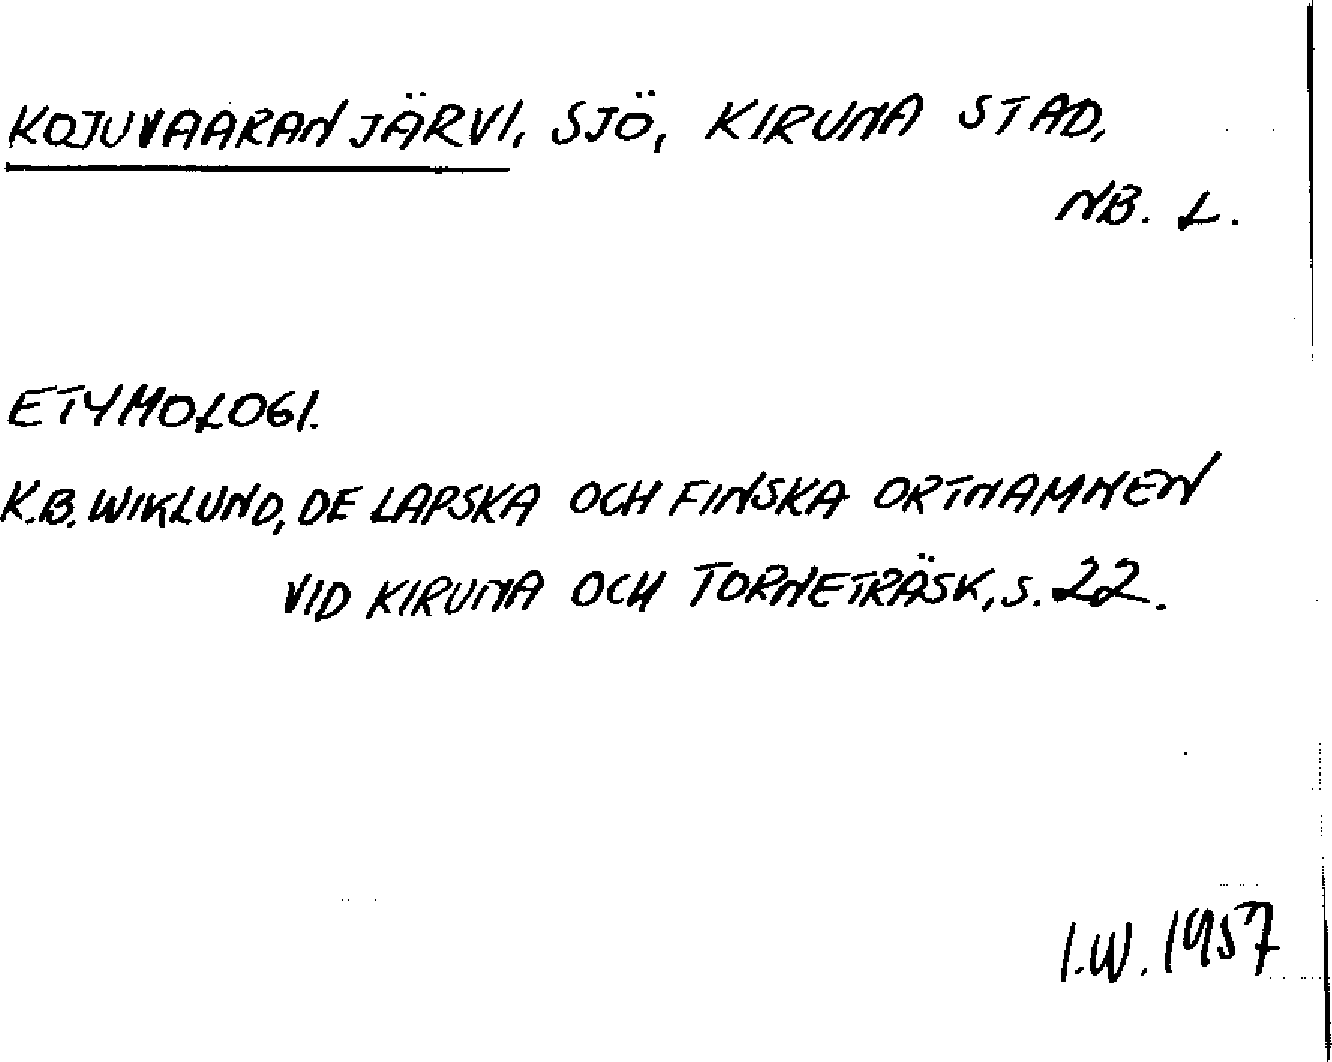 KOJUVAARANJÄRVI, SJÖ, KIRUNA STAD,
NB. L.
ETYMOLOGI.
K.B. WIKLUND, DE LAPSKA OCH FINSKA ORTNAMNEN
VID KIRUNA OCH TORNETRÄSK, S. 22.
I.W. 1957